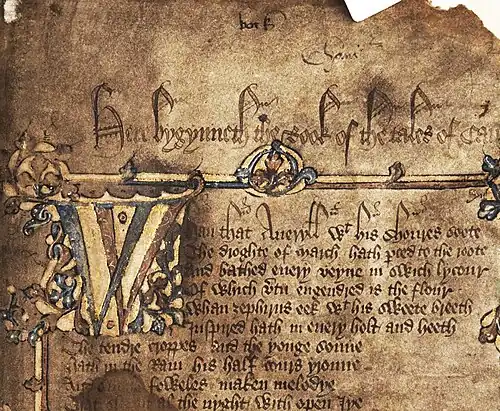 Here bygynneth the Book of the tales of Ca
Whan that Aueryll wt his shoures soote
The droghte of march hath pced to the roote
And bathed euery veyne in swich lycour
Of which vtu engendred is the flour
Whan zephirus eek wt his sweete breeth
Inspired hath in euery holt and heeth
The tendre croppes and the yonge sonne
Hath in the Ram his half cours yronne
And foweles maken melodye
al the nyght with open Iye